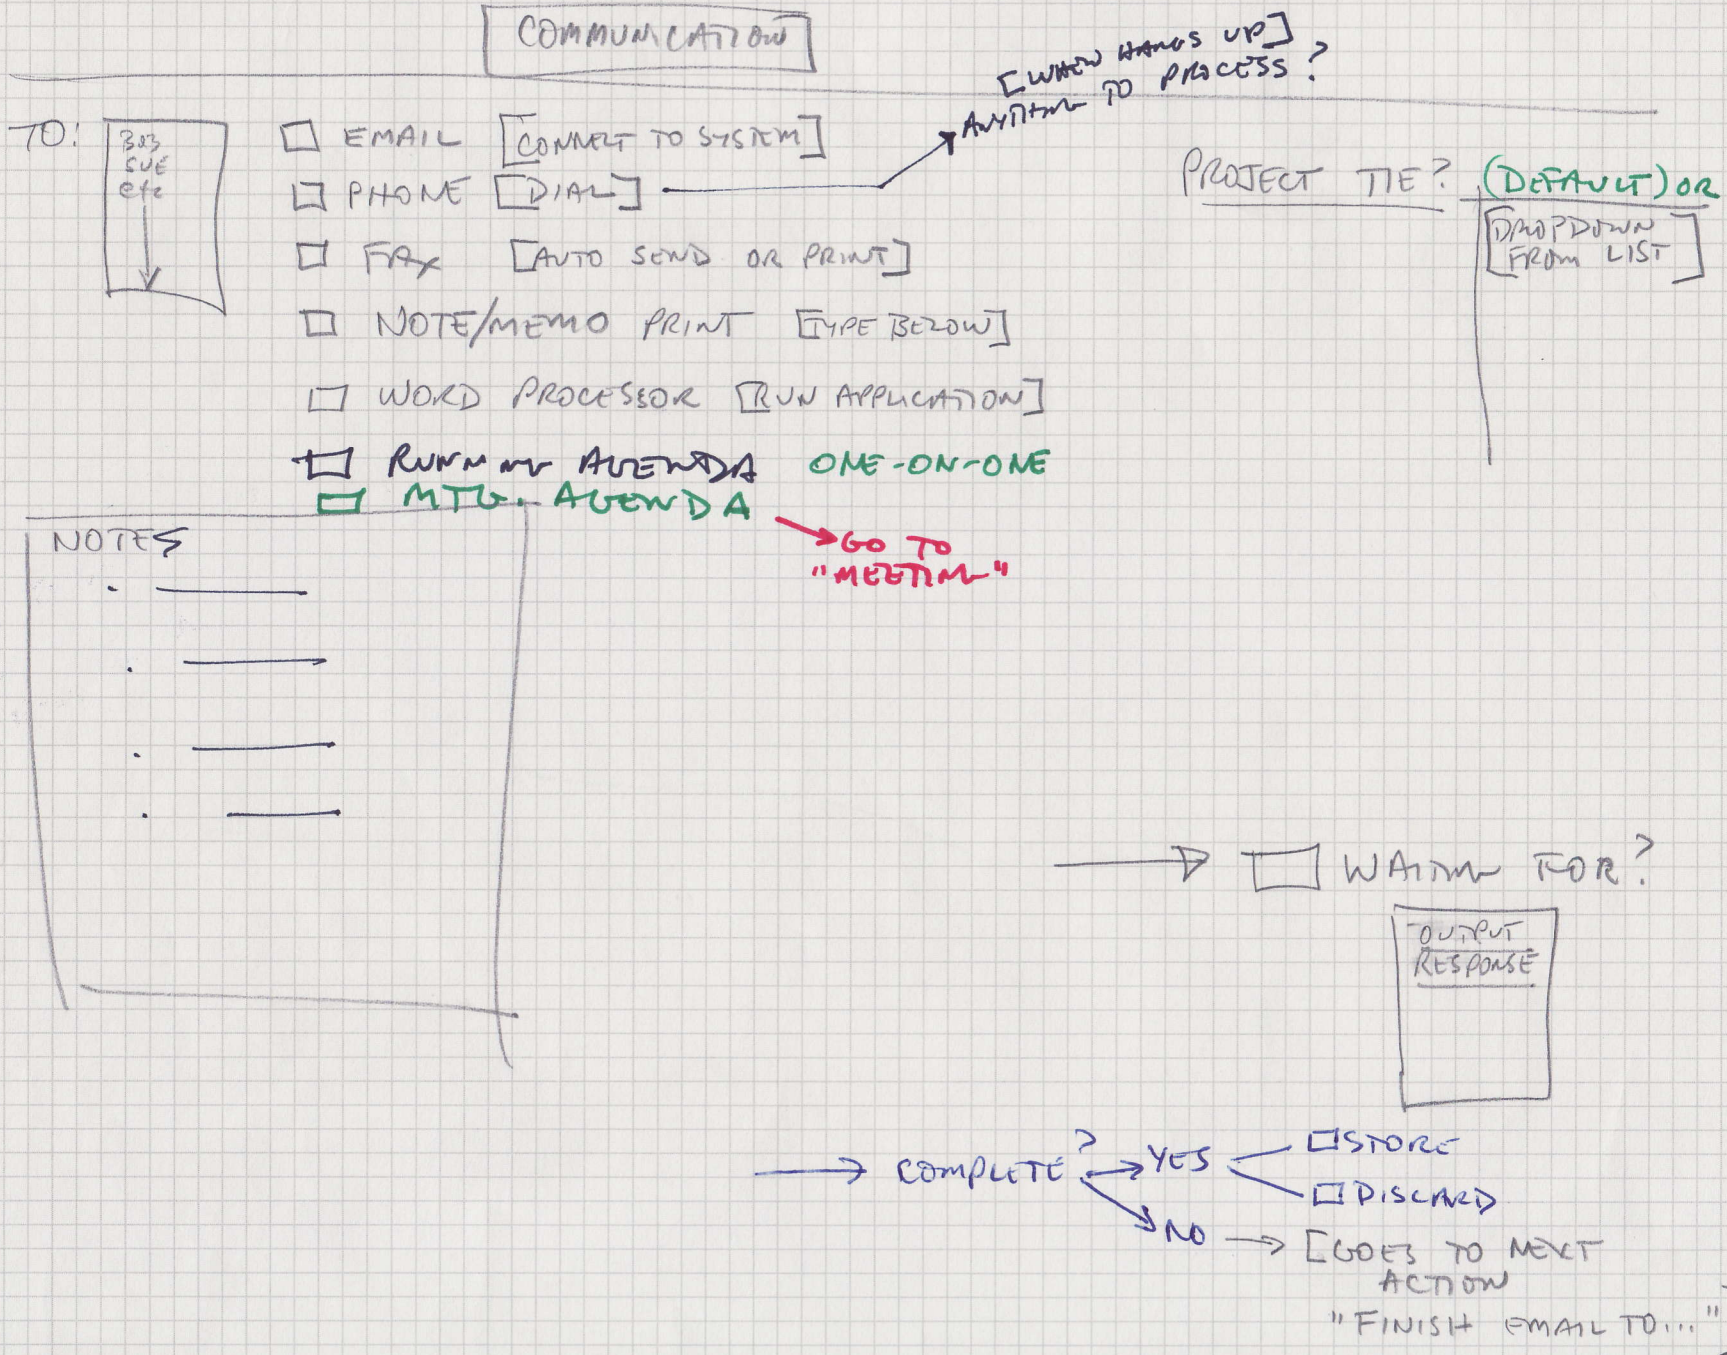 COMMUNICATION
[WHEN HANGS UP]
ANYTHING TO PROCESS?
TO:
BOB
SUE
etc
EMAIL [CONNECT TO SYSTEM]
PHONE [DIAL]
FAX [AUTO SEND OR PRINT]
NOTE/MEMO PRINT [TYPE BELOW]
WORD PROCESSOR [RUN APPLICATION]
RUNNING AGENDA ONE-ON-ONE
MTG. AGENDA
GO TO
"MEETING"
PROJECT TIE? (DEFAULT) OR
[DROPDOWN
FROM LIST]
NOTES
WAITING FOR?
OUTPUT
RESPONSE
COMPLETE?
YES
STORE
DISCARD
NO
[GOES TO NEXT
ACTION
"FINISH EMAIL TO..."